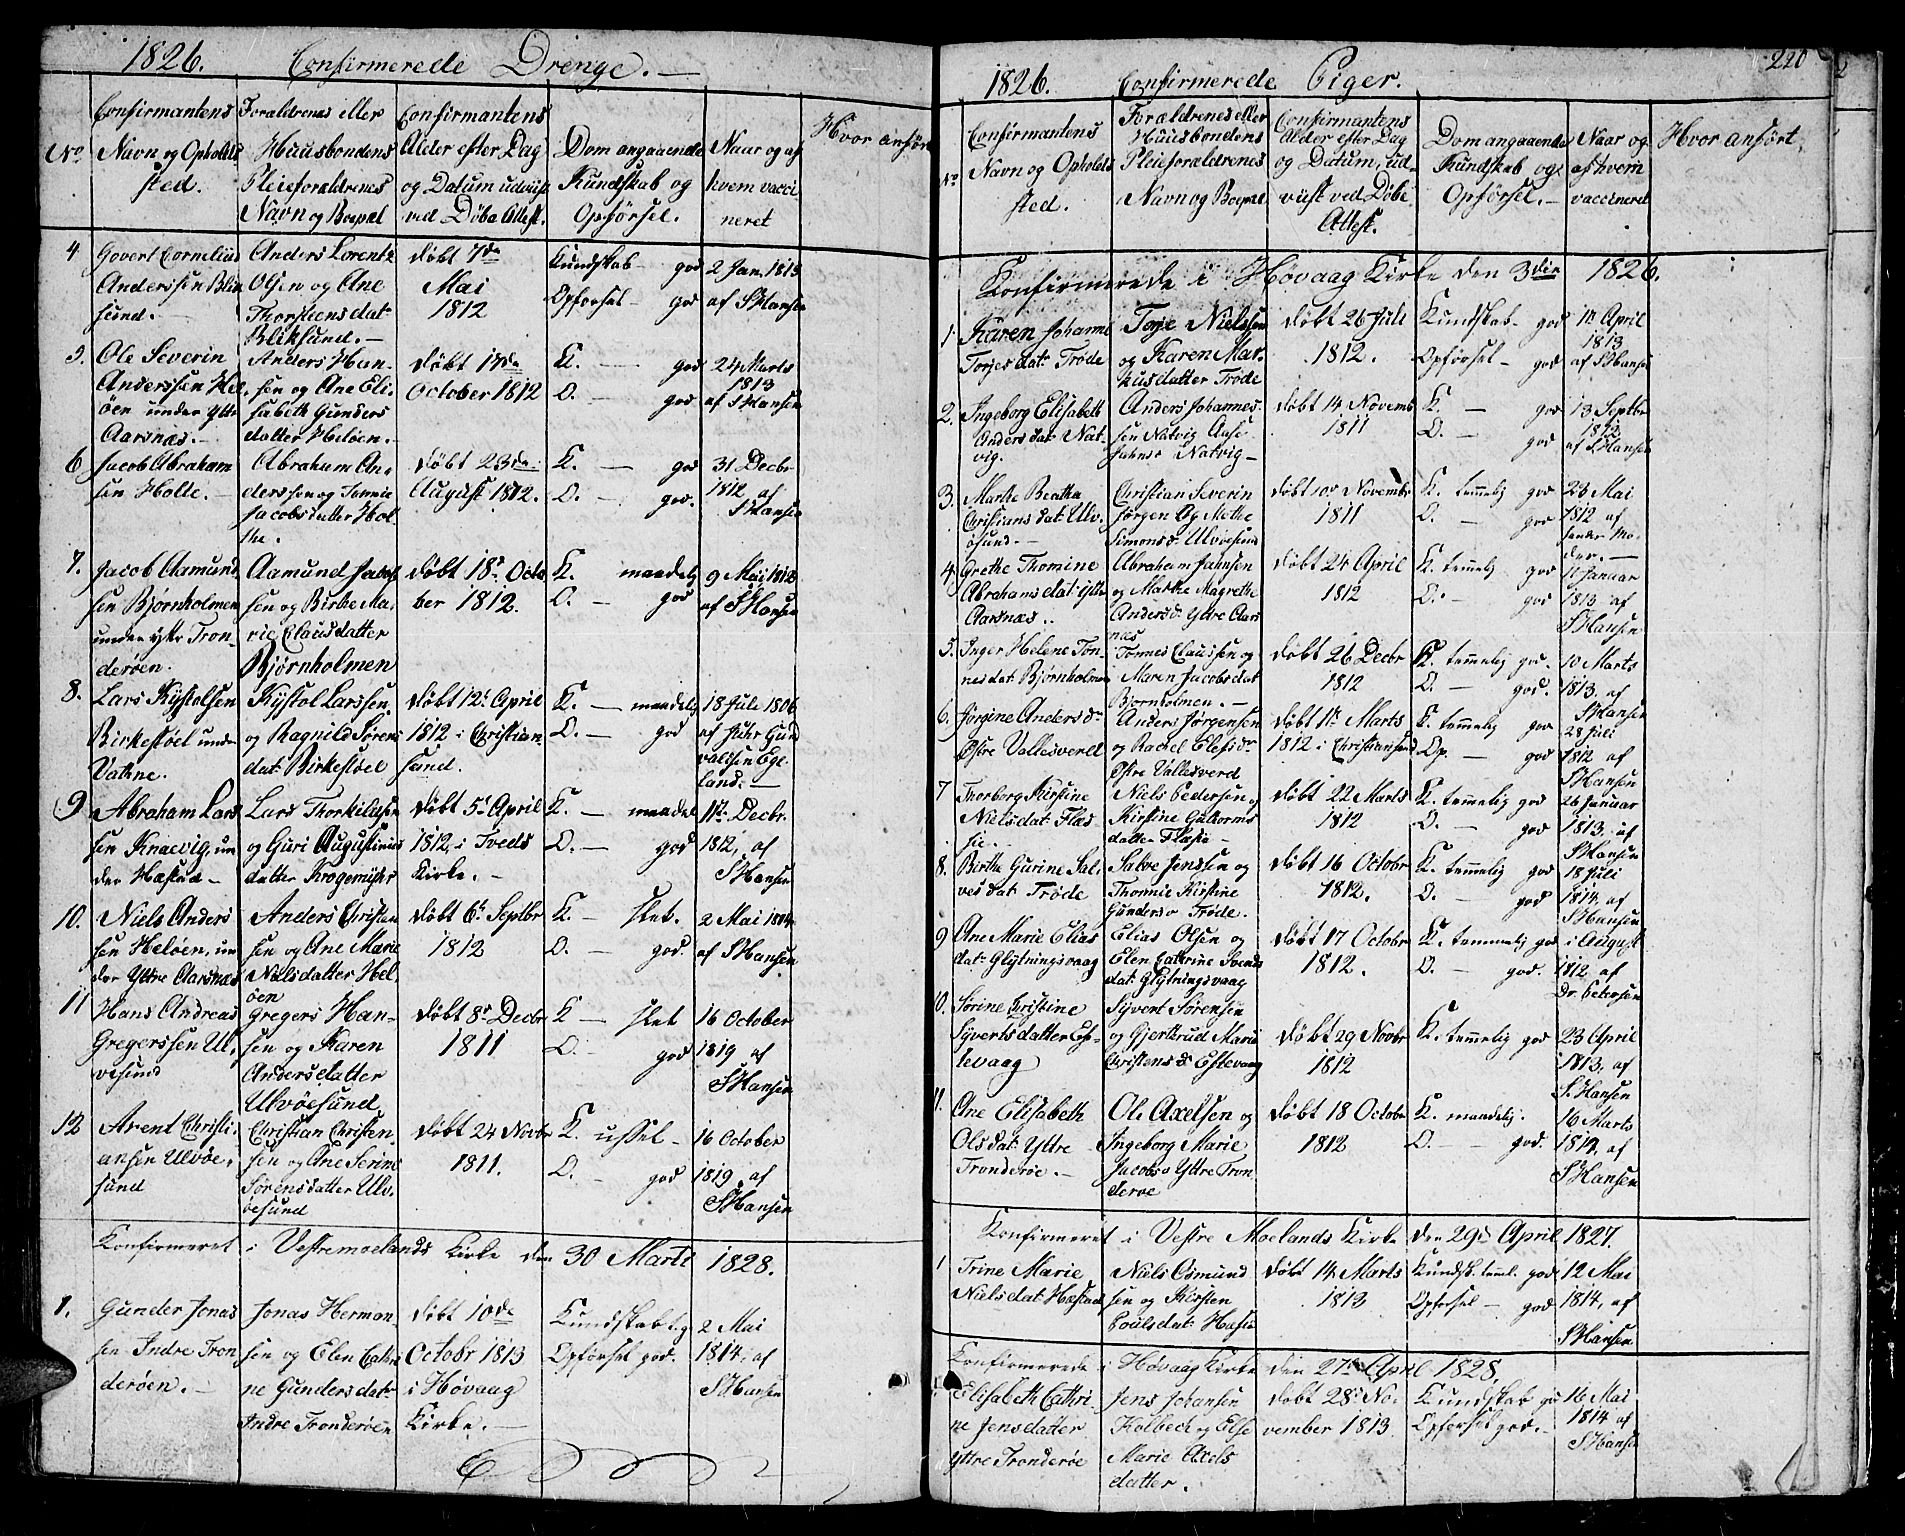 1826. Confirmerede Drenge. —
No.
Confirmantens
Navn og Opholds
sted.
Forældrenes eller
Huusbondens
Pleieforældrenes
Navn og Bopæl
Confirmantens
Alder efter Dag
og Datum udviist
ved Døbe Attest.
Dom angaaende
Kundskab og
Opførsel.
Naar og af
hvem vacci
neret
Hvor anført
4
Govert Cornelius
Anderssen Blik
sund. —
Anders Lorentz
Olsen og Ane
Thorstensdat:
Bliksund. —
døbt 7de
Mai
1812
Kundskab — god
Opforsel — god
2 Jan. 1813
af SHansen
5.
Ole Severin
Anderssen Hel
øen under Ytr
Aarsnæs. —
Anders Han-
sen og Ane Eli-
sabeth Gunders
datter Heløen. —
døbt 17de
October 1812
K. — god
O. — god
24 Marts
1813
af SHansen
6
Jacob Abraham
sen Holte. —
Abraham An-
derssen og Tonnie
Jacobsdatter Hol
the.
døbt 23de
August 1812.
K. — god
O. — god.
31 Decbr
1812 af
SHansen
7.
Jacob Aamund
sen Bjornholmen
under ytr Tron-
derøen.
Aamund Jacob
sen og Birthe Ma-
rie Clausdatter
Bjørnholmen
døbt 18d Octo
ber 1812.
K. maadelig
O. — god
9 Mai 1813
af SHansen
8.
Lars Kystolsen
Birkestøel unde
Vathne.
Kystol Larssen
og Ragnild Sørens
dat: Birkestøel
døbt 12t April
1812 i Christian-
sand.
K. — maadelig
O. — god
18 Juli 1806
af Guld
valdsen Ege
land. —
9
Abraham Lars
sen Knaevig, un
der Hæstad —
Lars Thorkildsen
og Guri Augustinus
datter Krogemyhr
døbt 5t April
1812, i Tveds
Kirke. —
K. — maadel
O. — god
11te Decbr.
1812, af
SHansen
10.
Niels Anders
sen Heløen, un
der Yttre Aarsnæs
Anders Christen
sen og Ane Marie
Nielsdatter Hel
øen
døbt 6t Septbr
1812
K. — slet.
O. — god.
2 Mai 1814
af SHansen
11
Hans Andreas
Gregerssen Ul,
vesund
Gregers Han-
sen og Karen
Andersdatter
Ulvøesund
døbt 8d Decbr
1811
K — slet
O. — god
16 October
1819 af
SHansen
12
Arent Christi-
ansen Ulvøe-
sund
Christian Christen-
sen og Ane Serine
Sørensdatter Ulv-
øesund
døbt 24 Novbr
1811.
K. ussel —
O. — god
16 October
1819 af
SHansen
Konfirmeret i Vestremoelands Kirke den 30 Marts 1828.
1.
Gunder Jonas
sen Indre Tron
derøen. —
Jonas Herman-
sen og Elen Cathri
ne Gundersdat:
Indre Tronderøen
døbt 10de
Octobr 1813
i Høvaag
Kirke. —
Kundskab t. g
Opførsel god.
2 Mai
1814, af
SHansen
220
1826. Confirmerede Piger.
No
Confirmantens
Navn og Opholds
sted.
Forældrenes eller
Huusbondens
Pleieforældrenes
Navn og Bopæl
Confirmantens
Alder efter Dag
og Datum, ud-
viist ved Døbe
Attest.
Dom angaaende
Kundskab og
Opførsel. —
Naar og
af hvem
vaccineret
Hvor anført.
Konfirmerede i Høvaag Kirke den 3die 1826.
1.
Karen Johanne
Torjesdat: Trøde
Torje Nielssen
og Karen Mar-
kusdatter Trøde
døbt 26 Juli
1812.
Kundskab — god
Opførsel — god
1t April
1813
af SHansen
2.
Ingeborg Elisabeth
Andersdat: Nat-
vig.
Anders Johannes-
sen Natvig Aase
Natvig —
døbt 14 Novemb
1811
K. — god
O. — god
13 Septbr
1812
af SHansen
3.
Marthe Beatha
Christiansdat: Ulv-
øsund. —
Christian Severin
Jørgen og Methe
Simonsd: Ulvoesund
døbt 10d Novembr
1811
K. temmelig god
O. — god
23 Mai
1812 af
hender Mo-
der. —
4
Grethe Thomine
Abrahamsdat: Ytre
Aarsnæs..
Abraham Jahnsen
og Marthe Magrethe
Andersd: Yttre Aars
næs
døbt 24 April
1812
K. temmelig god
O. — god
1t Januar
1813 af
SHansen
5.
Inger Helene Ton-
nesdat Bjørnholmen
Tønnes Claussen og
Maren Jacobsdat
Bjornholmen. —
døbt 26 Decbr
1812
K. temmelig god.
O. — god.
10 Marts
1813. af
SHansen
6.
Jørgine Andersd:
Østre Vallesverd
Anders Jørgensen
og Rachel Elefsd:
Østre Vallesverd
døbt 1t Marts
1812 i Christiansand
K. temmelig god
Op. — god
28 Juli
1812 af
SHansen
7
Thorborg Kirstine
Nielsdat: Flas-
sie. —
Niels Pedersen og
Kirstine Guttorms
datter Flasie —
døbt 22 Marts
1812
K. temmelig god
O. — god
26 Januar
1813. af
SHansen
8.
Birthe Gurine Sal-
vesdat: Trøde
Salve Jenssen og
Thomie Kirstine
Gundersd Trøde.
døbt 16 Octobr
1812.
K. temmelig god
O. — god
18 Juli
1814, af
SHansen
9
Ane Marie Elias
dat: Glytningsvaag
Elias Olsen og
Elen Cathrine Svends
dat: Glytningsvaag
døbt 17 Octobr
1812.
K. temmelig god
O. — god.
i August
1812 af
Dr. Petersen
10.
Sørine Kristine
Syvertsdatter Est-
tevaag
Syvert Sørensen
og Gjertrud Marie
Christensd: Estevaag
døbt 29 Novbr
1812
K. temmelig god
23 April
1813, af
S. Hansen
11.
Ane Elisabeth
Olsdat: Yttre
Tronderøe. —
Ole Axelsen og
Ingeborg Marie
Jacobsd Yttre Tron
derøe
døbt 18 Octobr
1812
K. maadelig.
O. — god.
16 Marts
1814, af
SHansen
Konfirmeret i Vestre Moelands Kirke den 29d April 1827.
1
Trine Marie
Nielsdat: Hæstad
Niels Osmund
sen og Kirsten
Poulsdat: Hæstd
døbt 14 Marts
1813
Kundsk. teml. god
Opforsel — god
12 Mai
1814, af
SHansen
Konfirmerede i Høvaag Kirke den 27de April 1828,
Elisabeth Cathri-
ne Jensdatter
Yttre Tronderøe
Jens Johansen
Holbeck og Else
Marie Axels
datter.
døbt 28d No-
vember 1813
Kundskab go
Opførsel god. —
16 Mai
1814 af
SHansen